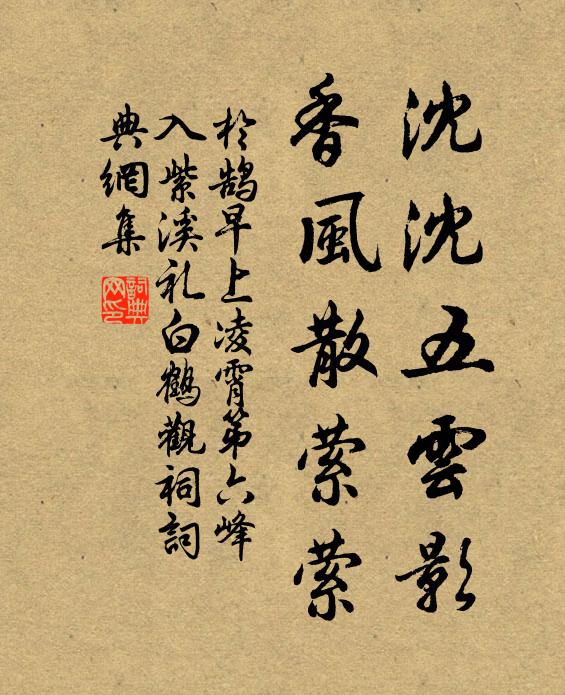 沈沈五雲影
香風散縈縈
於鵠早上凌霄第六峰
入紫溪礼白鶴觀祠詞
典網集
詞典网印